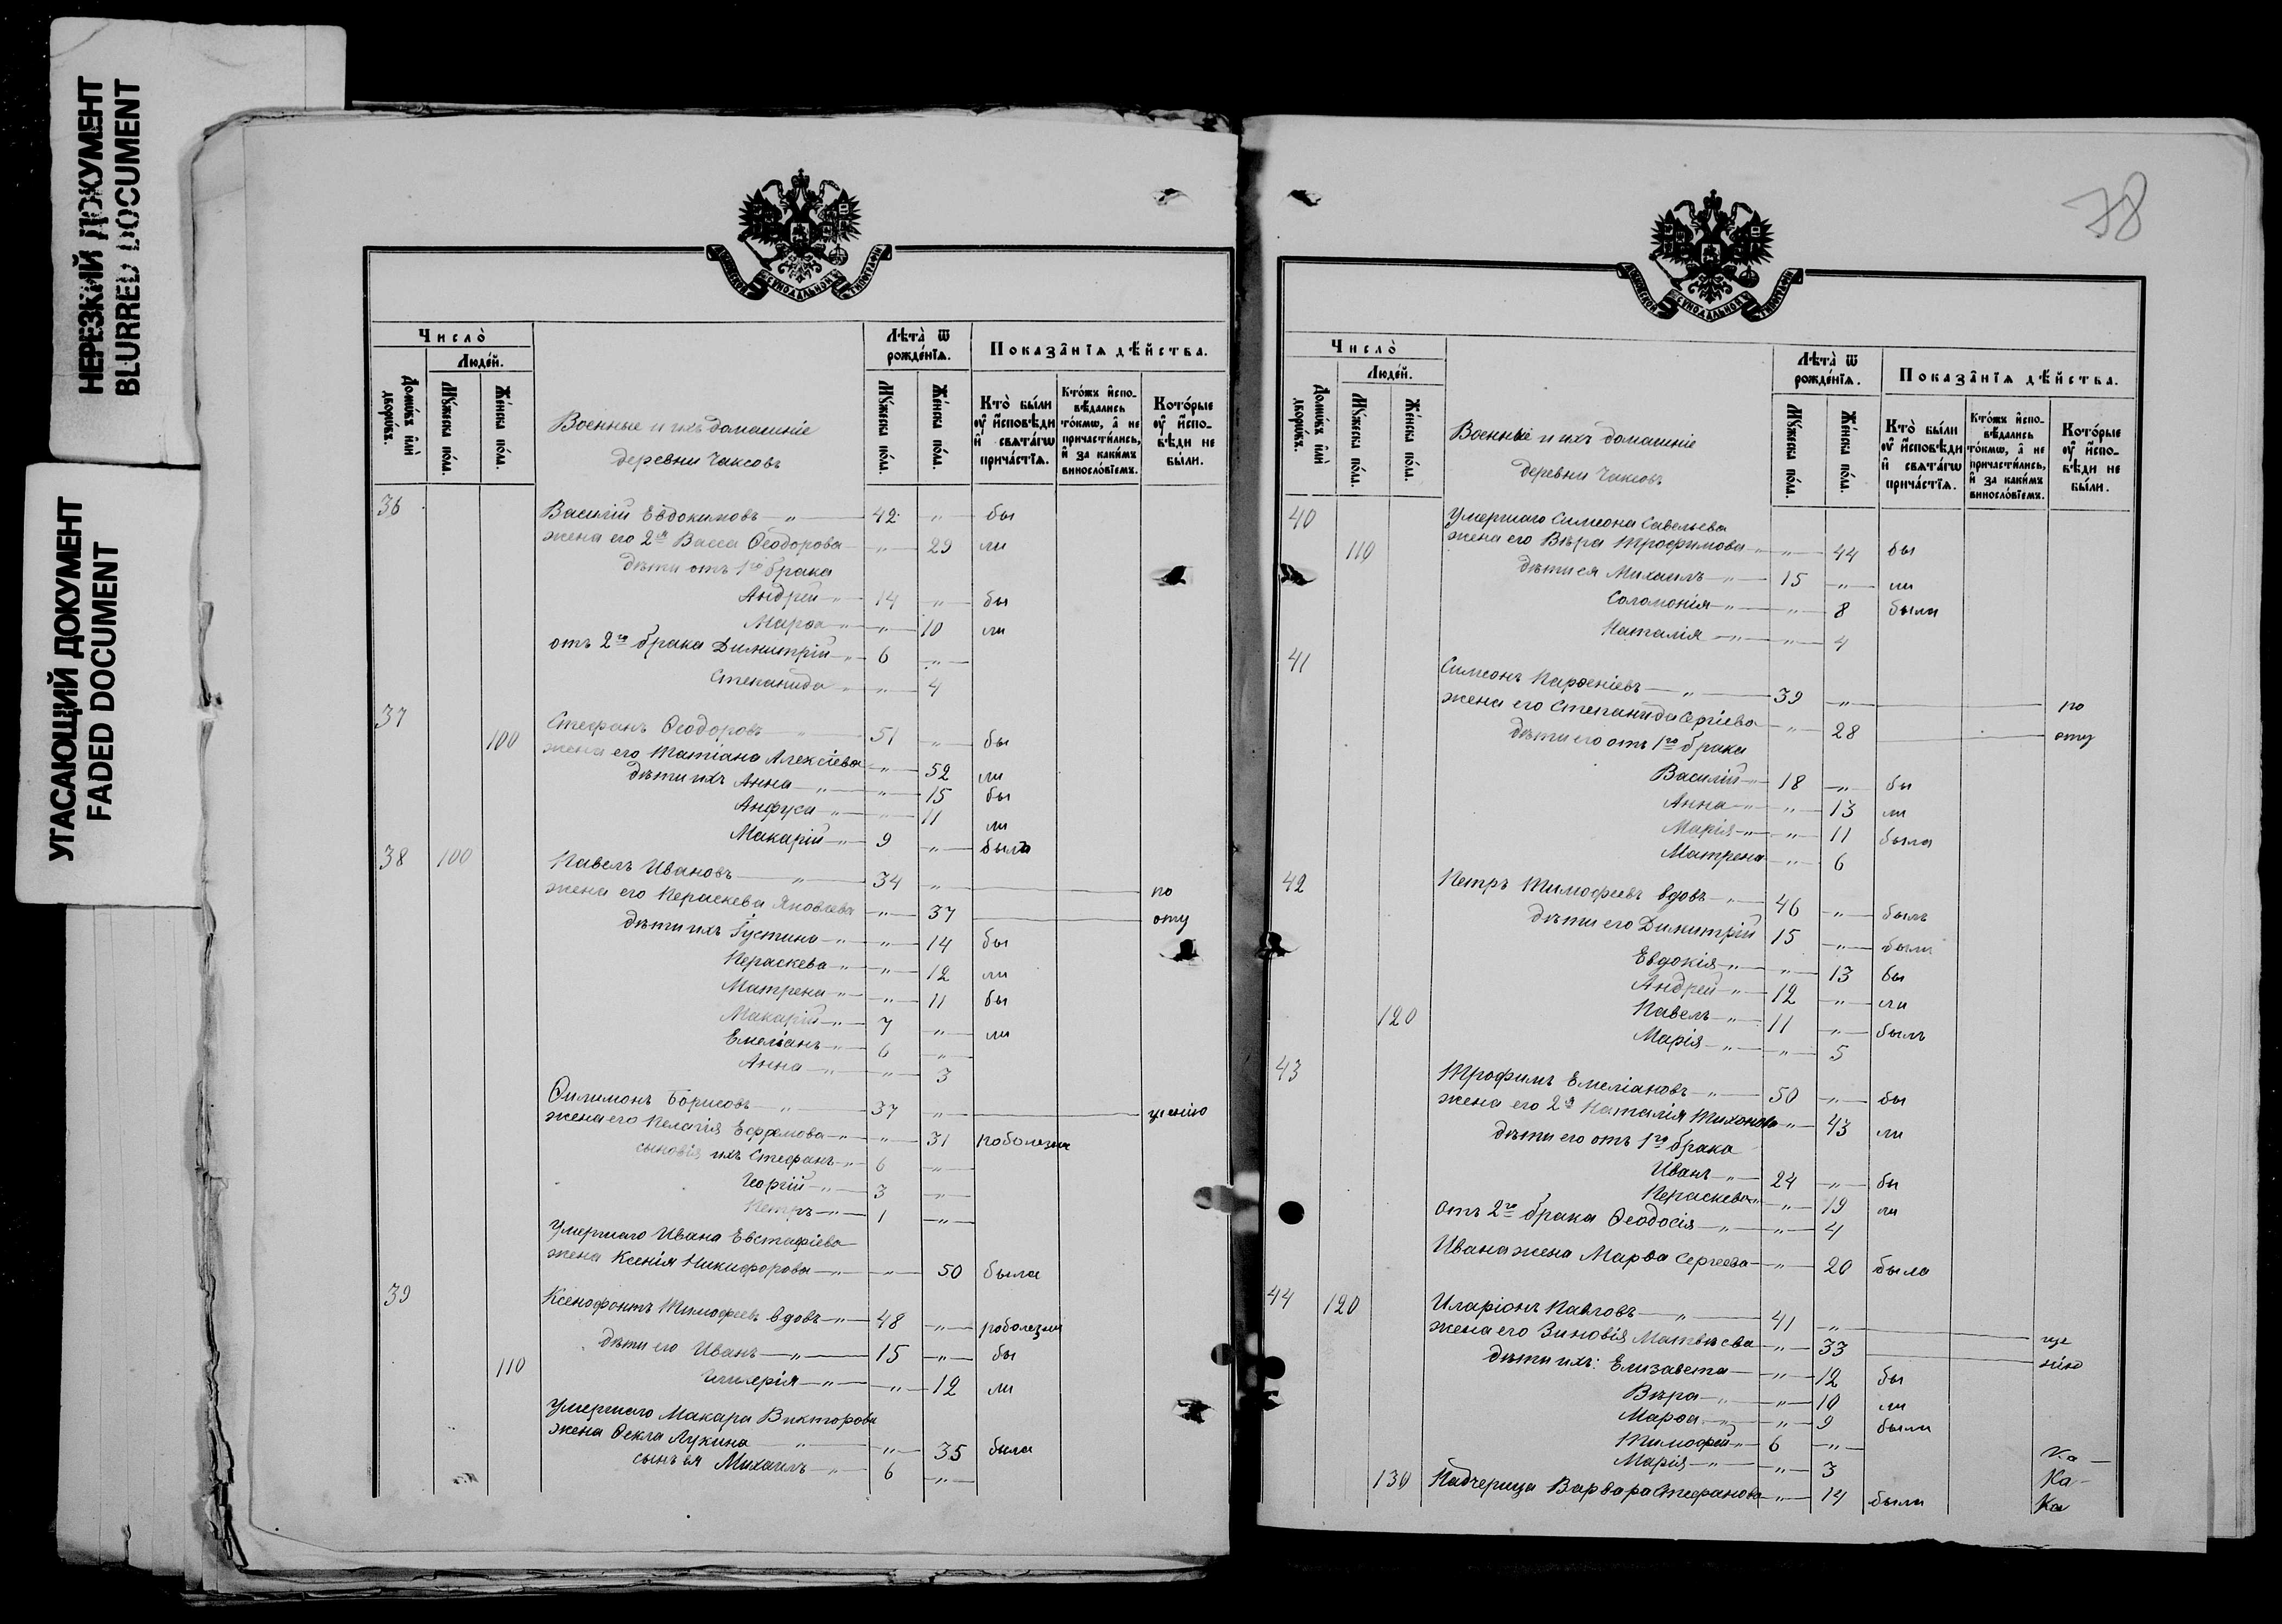 НЕРЕЗКИЙ ДОКУМЕНТ
BLURRED DOCUMENT
УГАСАЮЩИЙ ДОКУМЕНТ
FADED DOCUMENT
Число̀
Людéй.
Домѡ́въ и҆лѝ дворѡ́въ.
Мꙋ́жеска по́ла.
Же́нска по́ла.
Военные и ихъ домашніе
деревни Чаксовъ
Лѣта̀ ѿ рожде́нїѧ.
Мꙋ́жеска по́ла.
Же́нска по́ла.
Показа̂нїѧ дѣ́йства.
Кто̀ бы́ли ᲂу҆ и҆сповѣди и҆ свѧта́гѡ прича́стїѧ.
Кто́жъ и҆спо-вѣ́дались то́кмѡ, а҆ не причасти́лись, и҆ за каки́мъ винослóвїемъ.
Кото́рые ᲂу҆ и҆спо-вѣди не бы́ли.
36 Василій Евдокимовъ —„— 42 „ бы
жена его 2я Васса Ѳеодорова „ 29 ли
дѣти отъ 1го брака
Андрей —„— 14 „ бы
Марѳа —„— „ 10 ли
отъ 2го брака Димитрій —„— 6 „
Степанида „ „ 4
37 Стефанъ Ѳеодоровъ „ 51 „ бы
100 жена его Татіана Алексіева „ 52 ли
дѣти ихъ Анна —„— „ 15 бы
Анфуса „ „ 11 ли
Макарій —„— 9 „ былъ
38 100 Павелъ Ивановъ — „ — 34 „ по
жена его Пераскева Яковлева „ 37 опу
дѣти ихъ Іустина —„— „ 14 бы
Пераскева —„— „ 12 ли
Матрена —„— „ 11 бы
Макарій —„— 7 „ ли
Емеліанъ —„— 6 „
Анна —„— „ 3
Филимонъ Борисовъ — „ — 37 „ щенію
жена его Пелагія Ефремова —„— „ 31 по болезни
сыновія ихъ Стефанъ —„— 6 „
Георгій —„— 3 „
Петръ —„— 1 „
Умершаго Ивана Евстафіева
жена Ксенія Никифорова —„— „ 50 была
39 Ксенофонтъ Тимофеевъ вдовъ —„— 48 „ по болезни
дѣти его Иванъ —„— 15 „ бы
110 —„— „ 12 ли
Умершаго Макара Викторова
жена Ѳекла Лукина „ „ 35 была
сынъ ея Михаилъ „ 6 „
78
Число̀
Людéй.
Домѡ́въ и҆лѝ дворѡ́въ.
Мꙋ́жеска по́ла.
Же́нска по́ла.
Военные и ихъ домашніе
деревни Чаксовъ
Лѣта̀ ѿ рожде́нїѧ.
Мꙋ́жеска по́ла.
Же́нска по́ла.
Показа̂нїѧ дѣ́йства.
Кто̀ бы́ли ᲂу҆ и҆сповѣди и҆ свѧта́гѡ прича́стїѧ.
Кто́жъ и҆спо-вѣ́дались то́кмѡ, а҆ не причасти́лись, и҆ за каки́мъ винослóвїемъ.
Кото́рые ᲂу҆ и҆спо-вѣди не бы́ли.
40 Умершаго Симеона Савельева
110 жена его Вѣра Трофимова „ „ 44 бы
дѣти ея Михаилъ —„— 15 „ ли
Соломонія —„— „ 8 были
Наталія —„— „ 4
41 Симеонъ Парѳеніевъ — „ — 39 „ по
жена его Степанида Сергіева „ 28 опу
дѣти его отъ 1го брака
Василій —„— 18 „ бы
Анна —„— „ 13 ли
Марія —„— „ 11 была
Матрена „ 6
42 Петръ Тимофеевъ вдовъ —„— 46 „ былъ
дѣти его Димитрій 15 „ были
Евдокія —„— „ 13 бы
Андрей —„— 12 „ ли
120 Павелъ —„— 11 „ былъ
Марія —„— „ 5
43 Трофимъ Емеліановъ —„— 50 „ бы
жена его 2я Наталія Тихонова „ 43 ли
дѣти его отъ 1го брака
Иванъ —„— 24 „ бы
Пераскева „ „ 19 ли
отъ 2го брака Ѳеодосія —„— „ 4
Ивана жена Марѳа Сергеева „ 20 была
44 120 Иларіонъ Павловъ — „ — 41 „ ще
жена его Зиновія Матвѣева „ 33 нію
дѣти ихъ: Елизавета — „ 12 бы
Вѣра —„— „ 10 ли
Марѳа —„— „ 9 были
Тимофей „ 6 „
Марія —„— „ 3 Ка
130 Падчерица Варвара Стефанова „ 14 были Ка